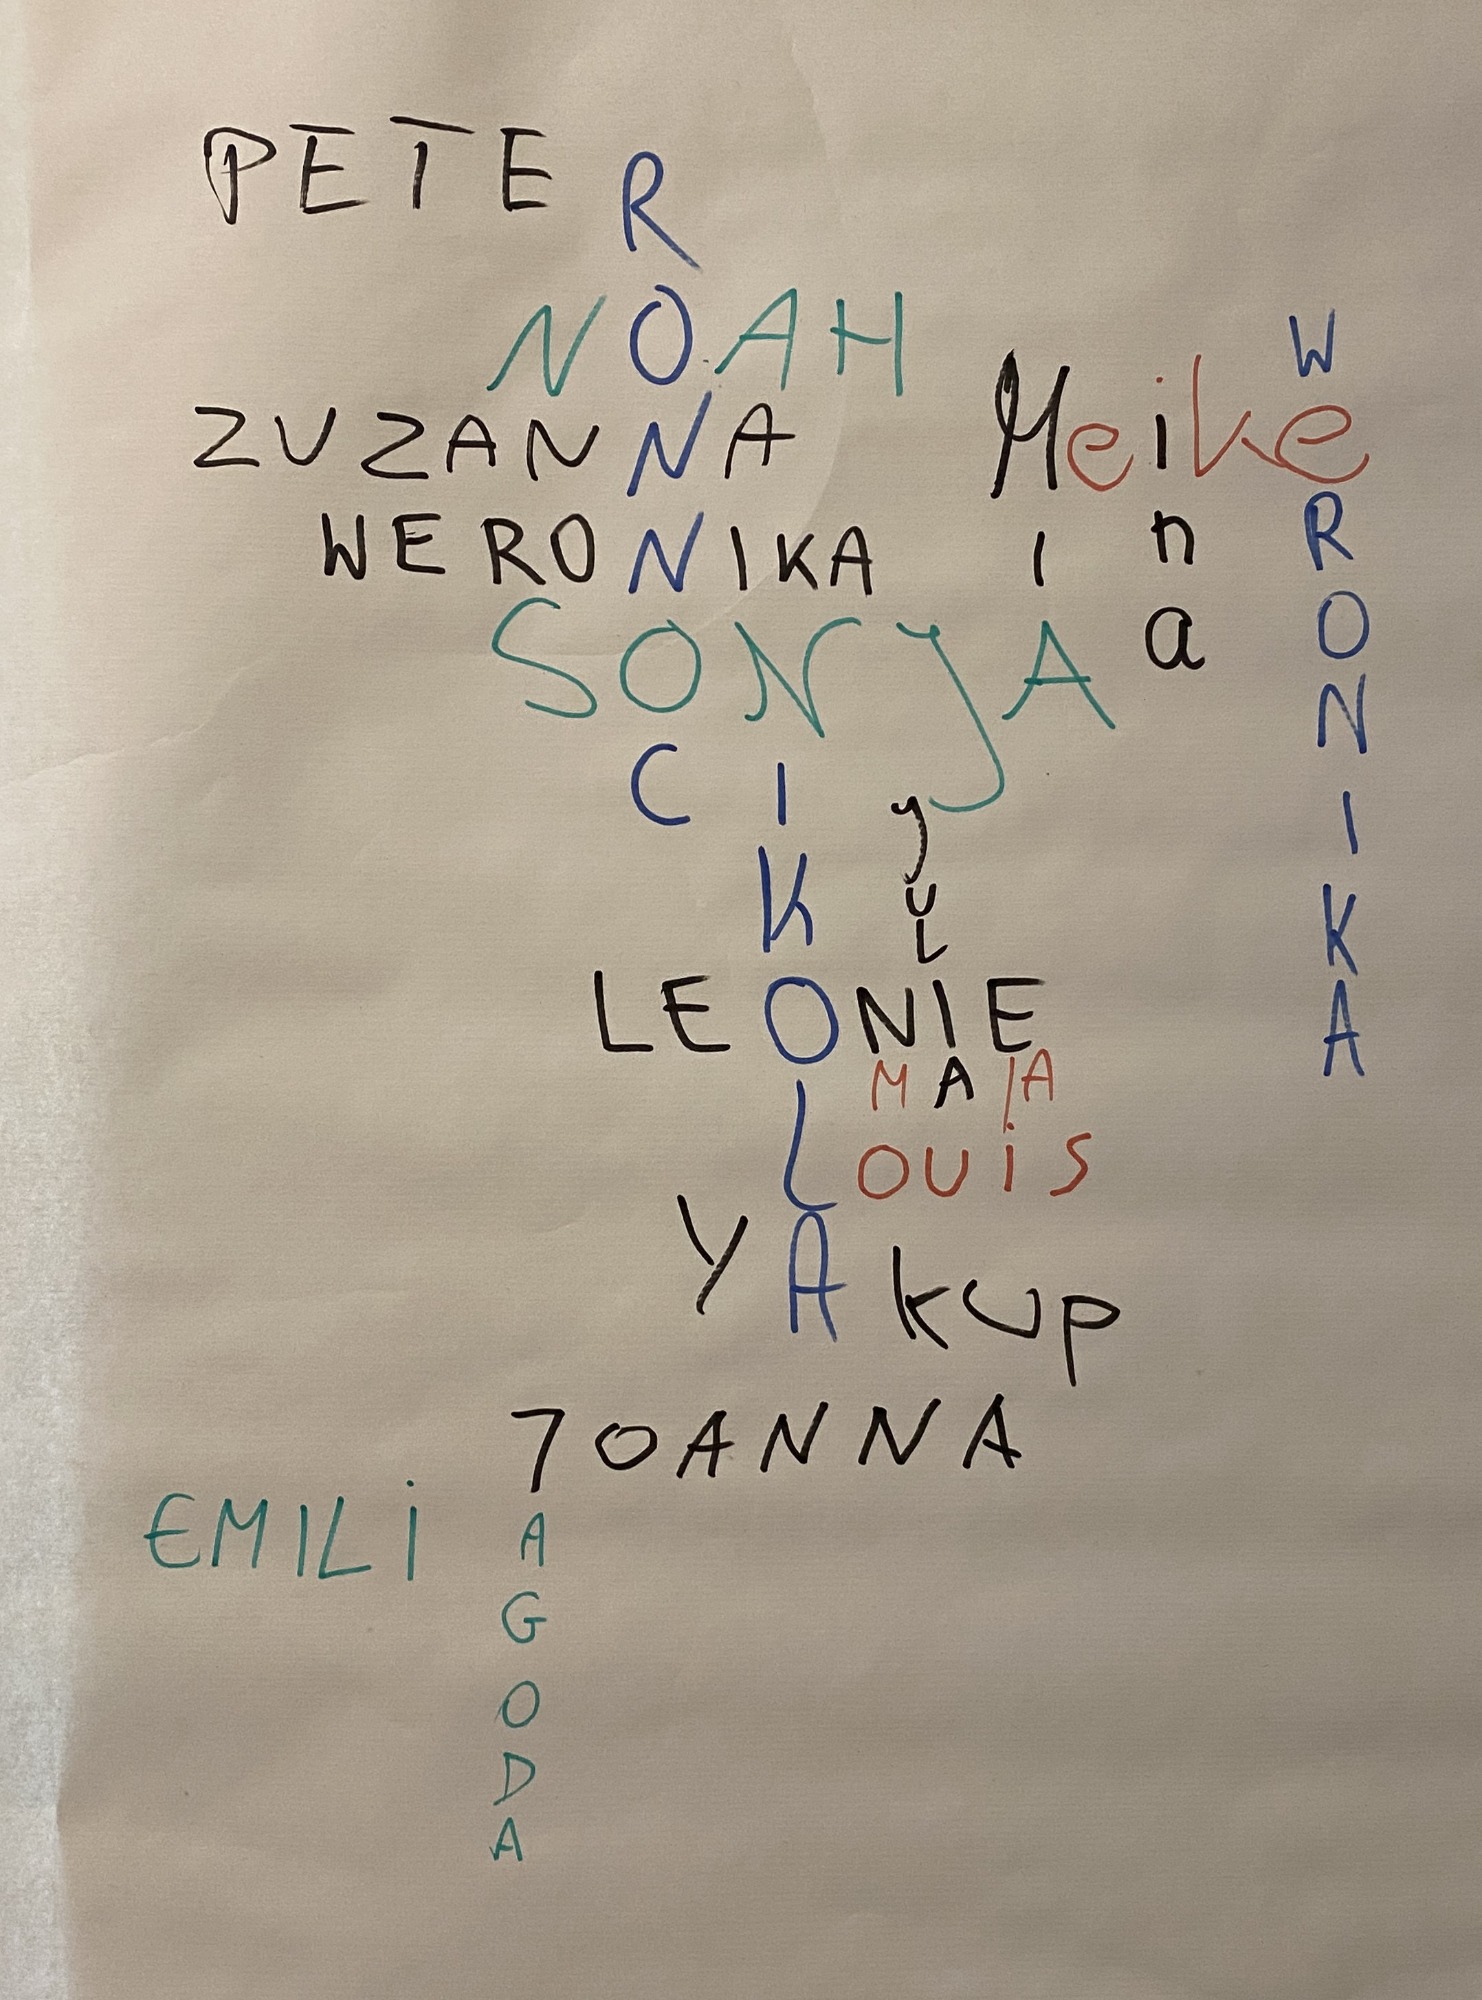 PETER
NOAH
W
ZUZANNA Meike
WERONIKA I n R
SONJA a O
N
C I I
y
K U K
L
LEONIE A
MAJA
LOUiS
YAkup
JOANNA
EMILi A
G
O
D
A